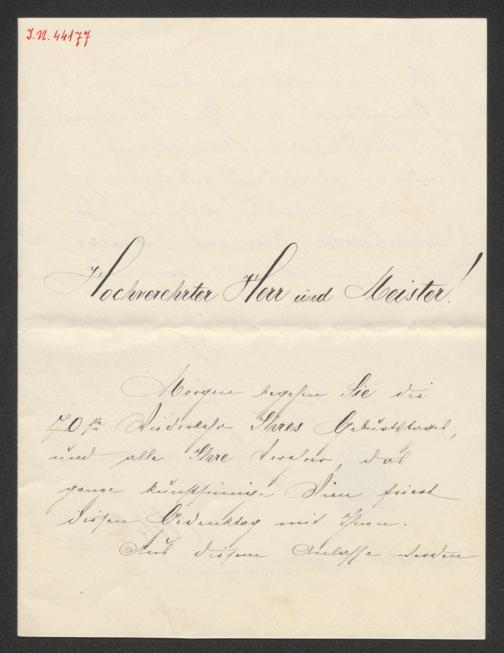 I.N. 44177
Hochverehrter Herr und Meister!
Morgen begehen Sie die
70te Wiederkehr Ihres Geburtstages,
und alle Ihre Verehrer, das
ganze kunstsinnige Wien feiert
diesen Gedenktag mit Ihnen.
Aus diesem Anlasse werden